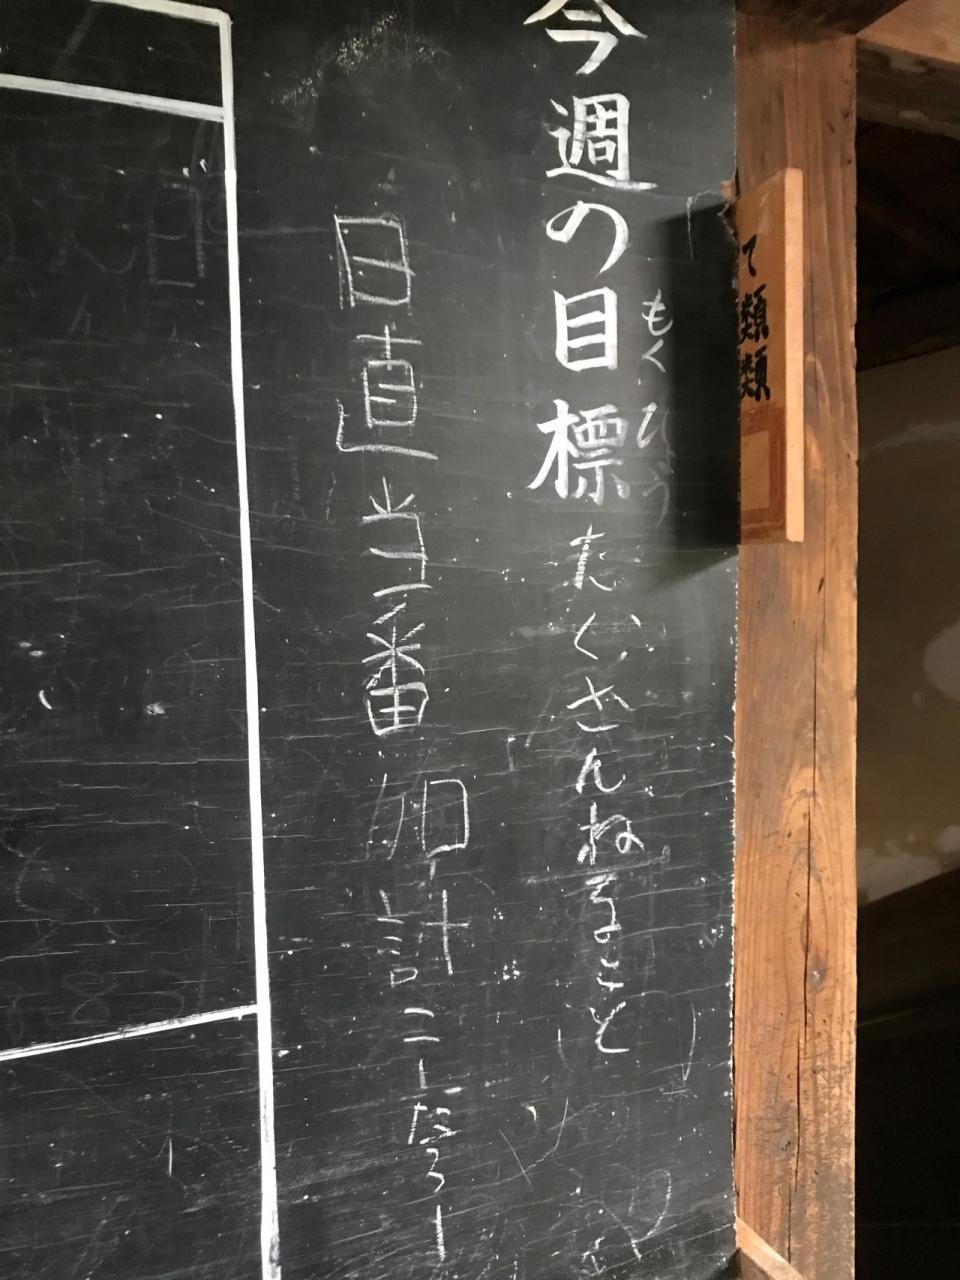 て類類
もくひょう
今週の目標 たくさんねること
目直当番